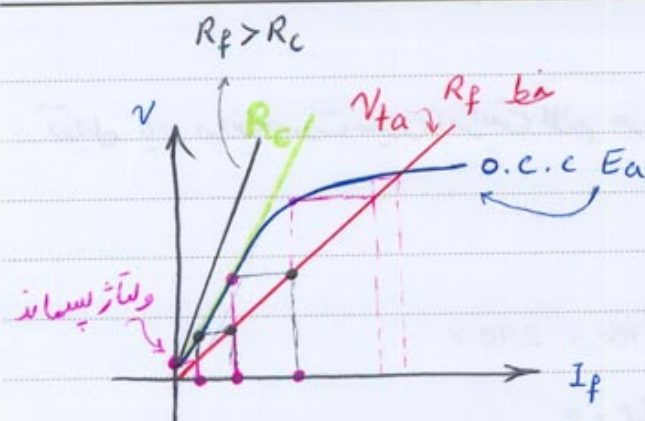 R_f > R_c
V
R_c
V_ta
R_f خط
o.c.c Ea
ولتاژ پسماند
I_f